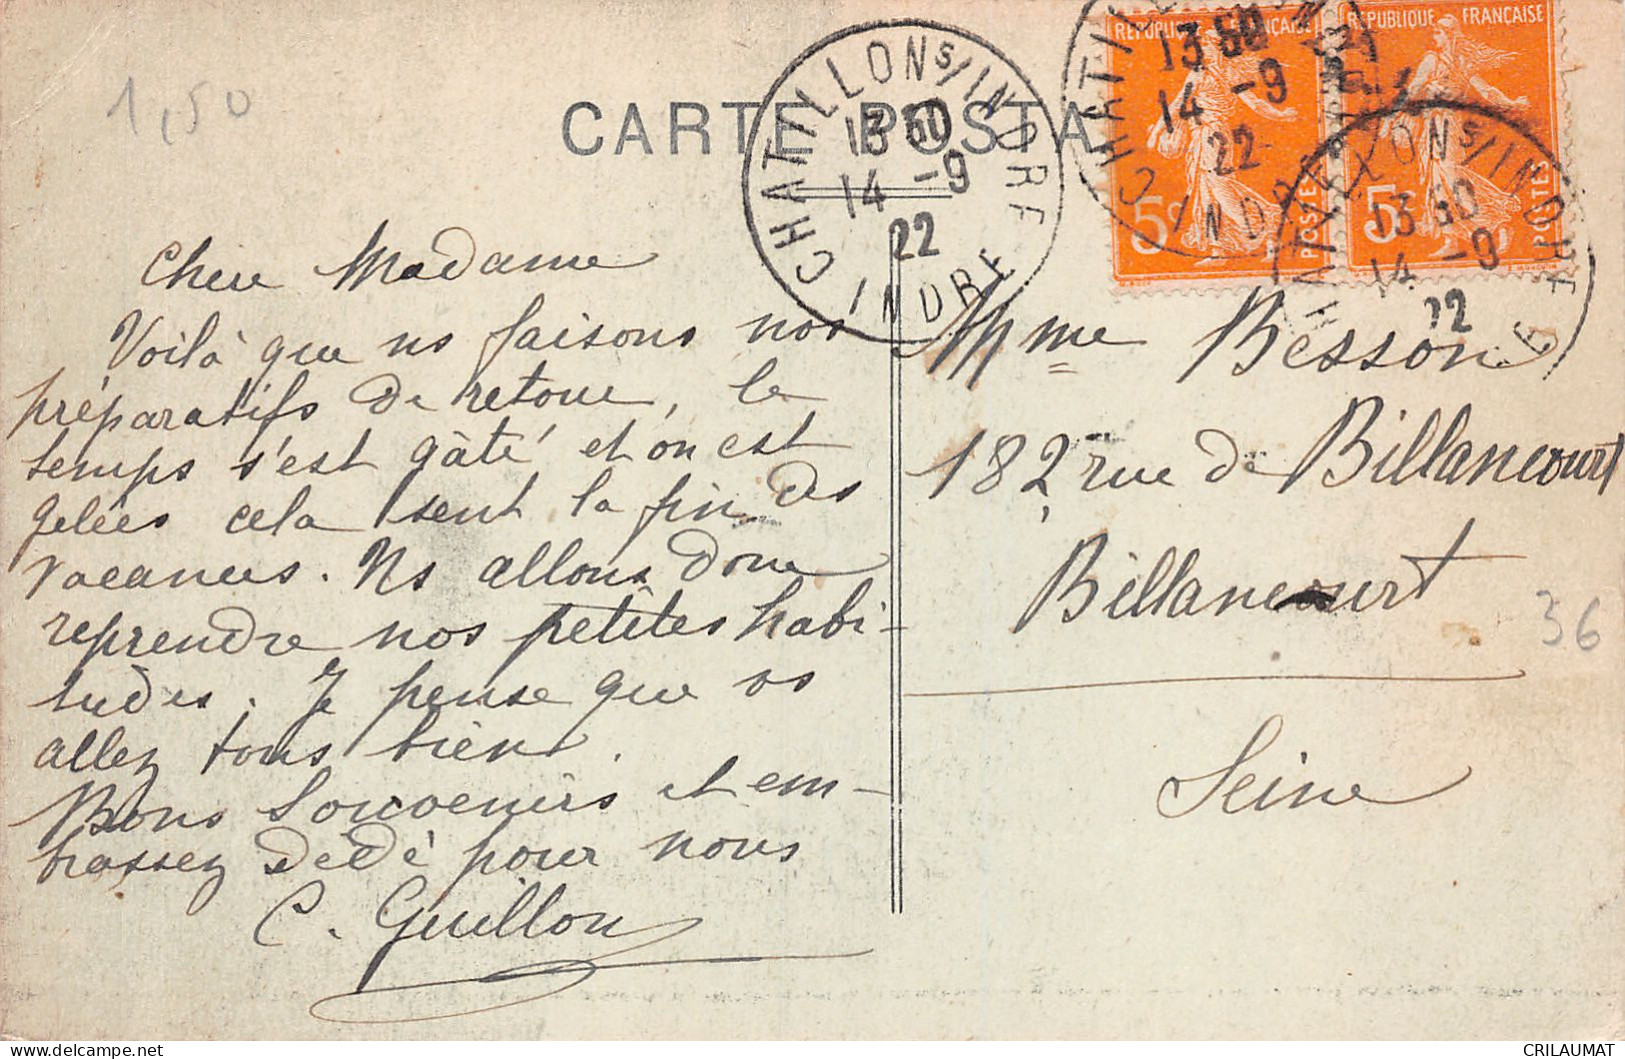 1,50
CARTE POSTA
CHATILLON S/INDRE
13 60
14 -9
22
INDRE
REPUBLIQUE FRANÇAISE
5c
POSTES
REPUBLIQUE FRANÇAISE
5c
POSTES
CHATILLON S/INDRE
13 60
14 -9
22
INDRE
CHATILLON S/INDRE
13 60
14 -9
22
Chère Madame
Voilà que ns faisons nos
préparatifs de retour, le
temps s'est gâté et on est
gelées cela sent la fin des
vacances. Ns allons donc
reprendre nos petites habi-
tudes. Je pense que vs
allez tous bien.
Bons Souvenirs et em-
brassez Dédé pour nous
C. Guillon
Mme Besson
182, rue de Billancourt
Billancourt
Seine
36
delcampe.net
CRILAUMAT